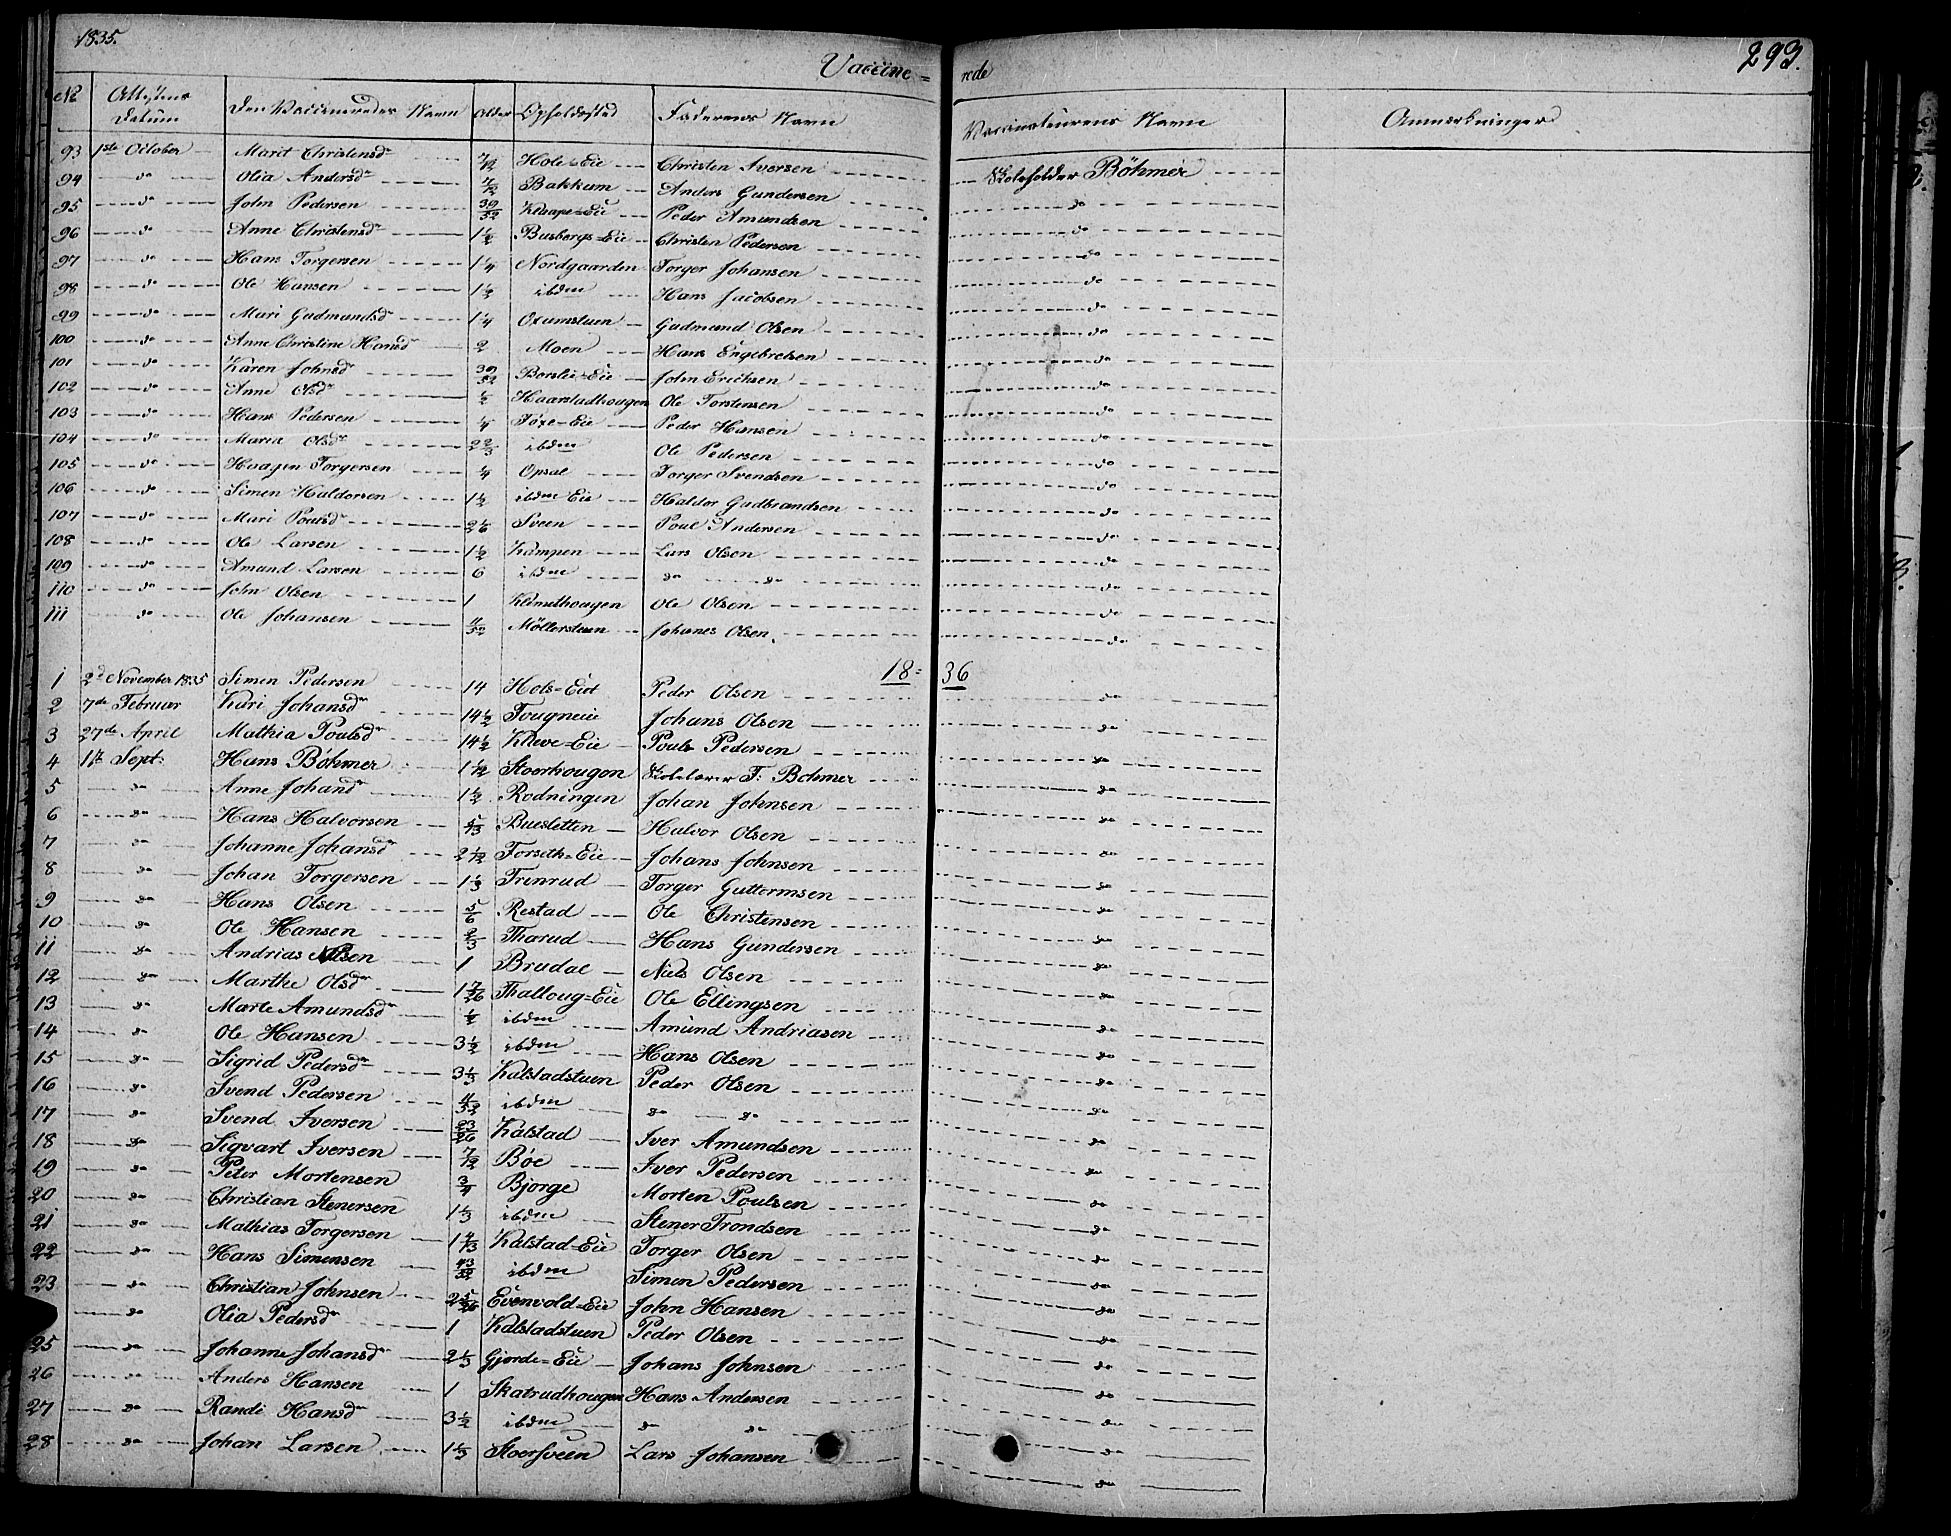 1835.
293.
Vaccine = rede
No Attestens Datum Den Vaccineredes Navn Alder Opholdssted Faderens Navn Vaccinateurens Navn Anmærkninger
93 1ste October Marit Christensdr 7/12 Hole=Eie Christen Iversen Skoleholder Böhmer
94 do Olia Andersdr 7/12 Bakkum Anders Gundersen do
95 do John Pedersen 39/52 Klaape=Eie Peder Amundsen do
96 do Anne Christensdr 1 1/2 Busbergs=Eie Christen Pedersen do
97 do Hans Torgersen 1 1/4 Nordgaarden Torger Johansen do
98 do Ole Hansen 1 1/2 ibdm Hans Jacobsen do
99 do Mari Gudmundsdr 1 1/4 Oxumstuen Gudmund Olsen do
100 do Anne Christine Hansdr 2 Moen Hans Engebretsen do
101 do Karen Johnsdr 39/52 Borslie=Eie John Ericksen do
102 do Anne Olsdr 1/2 Haarstadhougen Ole Torstensen do
103 do Hans Pedersen 1/4 Föxe=Eie Peder Hansen do
104 do Maria Olsdr 2 2/3 ibdm Ole Pedersen do
105 do Haagen Torgersen 1/4 Opsal Torger Svendsen do
106 do Simen Haldorsen 1 1/2 ibdm Eie Haldor Gudbrandsen do
107 do Mari Poulsdr 2 1/6 Sveen Poul Andersen do
108 do Ole Larsen 1 1/2 Kampen Lars Olsen do
109 do Amund Larsen 6 ibdm do do do
110 do John Olsen 1 Klimsthougen Ole Olsen do
111 do Ole Johansen 11/52 Möllerstuen Johanes Olsen do
18=36
1 2d November 1835 Simen Pedersen 14 Hols=Eiet Peder Olsen do
2 7de Februar Kari Johansdr 14 1/2 Tougneiie Johans Olsen do
3 27de April Mathia Poulsdr 14 1/2 Kleve=Eie Pouls Pedersen do
4 17 Sept: Hans Böhmer 1 1/12 Stoerhougen Skolelærer F: Bohmer do
5 do Anne Johansdr 1 1/2 Rodningen Johan Johnsen do
6 do Hans Halvorsen Buesletten Halvor Olsen do
7 do Johanne Johansdr 2 1/12 Forseth=Eie Johans Johnsen do
8 do Johan Torgersen 1 1/3 Trinrud Torger Guttormsen do
9 do Hans Olsen 5/6 Restad Ole Christensen do
10 do Ole Hansen 2/3 Tharud Hans Gundersen do
11 do Andrias Nilsen 1 Brudal Niels Olsen do
12 do Marthe Olsdr 1 7/26 Thalloug=Eie Ole Ellingsen do
13 do Marte Amundsdr 1/2 ibdm Amund Andriasen do
14 do Ole Hansen 3 1/2 ibdm Hans Olsen do
15 do Sigrid Pedersdr 3 1/3 Kalstadstuen Peder Olsen do
16 do Svend Pedersen 11/52 ibdm do do do
17 do Svend Iversen 23/26 Kalstad Iver Amundsen do
18 do Sigvart Iversen 7/12 Böe Iver Pedersen do
19 do Peter Mortensen 3/4 Bjorge Morten Poulsen do
20 do Christian Stenersen 1 1/3 ibdm Stener Trondsen do
21 do Mathias Torgersen Kalstad=Eie Torger Olsen do
22 do Hans Simensen 43/52 ibdm Simen Pedersen do
23 do Christian Johnsen 2 5/26 Evenvold=Eie John Hansen do
do Olia Pedersdr 1 Kalstadstuen Peder Olsen do
25 do Johanne Johansdr 2 1/3 Gjorde=Eie Johans Johnsen do
26 do Anders Hansen 1 Skatrudhougen Hans Andersen do
27 do Randi Hansdr 3 1/2 ibdm do do do
28 do Johan Larsen 1 1/3 Stoersveen Lars Johansen do